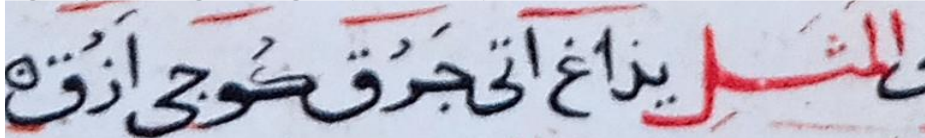 المثل يذاغ اتى جَرُق كُوجى اَزُق ه